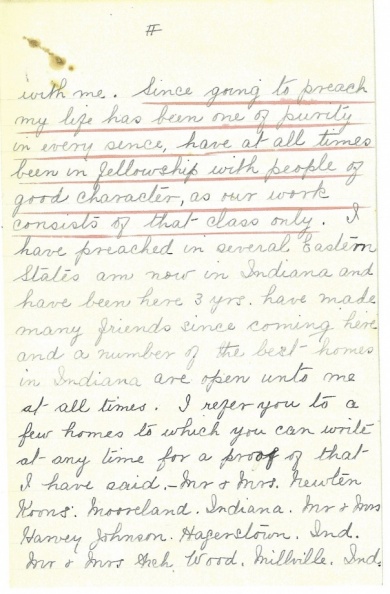 II
with me. Since going to preach
my life has been one of purity
in every sence, have at all times
been in fellowship with people of
good character, as our work
consists of that class only. I
have preached in several Eastern
States am now in Indiana and
have been here 3 yrs. have made
many friends since coming here
and a number of the best homes
in Indiana are open unto me
at all times. I refer you to a
few homes to which you can write
at any time for a proof of that
I have said. - Mr & Mrs. Newten
Koons. Mooreland. Indiana. Mr & Mrs
Harvey Johnson. Hagerstown. Ind.
Mr & Mrs Wood. Millville. Ind.